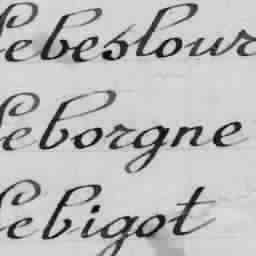 Lebeslour
Leborgne
Lebigot